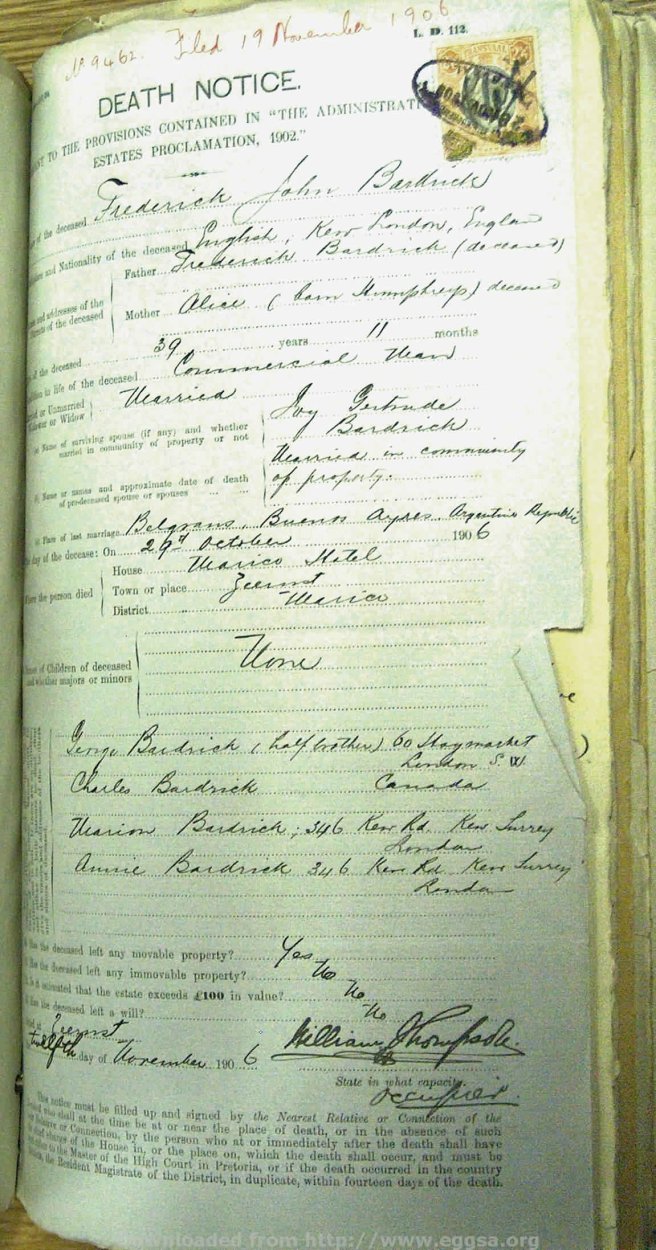 No 9462. Filed 19 November 1906
L. D. 112.
DEATH NOTICE.
TO THE PROVISIONS CONTAINED IN "THE ADMINISTRATI
ESTATES PROCLAMATION, 1902."
TRANSVAAL
of the deceased Frederick John Bardrick
and Nationality of the deceased English, Kew London, Englan
Father Frederick Bardrick (deceased)
and addresses of the
of the deceased
Mother Alice (born Humphreys) deceased
of the deceased 39 years 11 months
in life of the deceased Commercial Man
or Unmarried Married
or Widow
Name of surviving spouse (if any) and whether
married in community of property or not
Ivy Gertrude
Bardrick
Married in community
of property.
Name or names and approximate date of death
of pre-deceased spouse or spouses
Place of last marriage Belgrano, Buenos Ayres, Argentine Republic
day of the decease: On 29th October 1906
the person died
House Marico Hotel
Town or place Zeerust
District Marico
of Children of deceased
and whether majors or minors
None
George Bardrick (half brother) 60 Haymarket
London S.W
Charles Bardrick Canada
Marion Bardrick, 346 Kew Rd. Kew Surrey
London
Annie Bardrick 346 Kew Rd Kew Surrey
London
Has the deceased left any movable property? Yes
Has the deceased left any immovable property? No
Is it estimated that the estate exceeds £100 in value? No
Has the deceased left a will? No
Dated at Zeerust
twelfth day of November 1906
William Thompson
State in what capacity.
occupier
This notice must be filled up and signed by the Nearest Relative or Connection of the
who shall at the time be at or near the place of death, or in the absence of such
or Connection, by the person who at or immediately after the death shall have
charge of the House in, or the place on, which the death shall occur, and must be
to the Master of the High Court in Pretoria, or if the death occurred in the country
the Resident Magistrate of the District, in duplicate, within fourteen days of the death.
Downloaded from http://www.eggsa.org